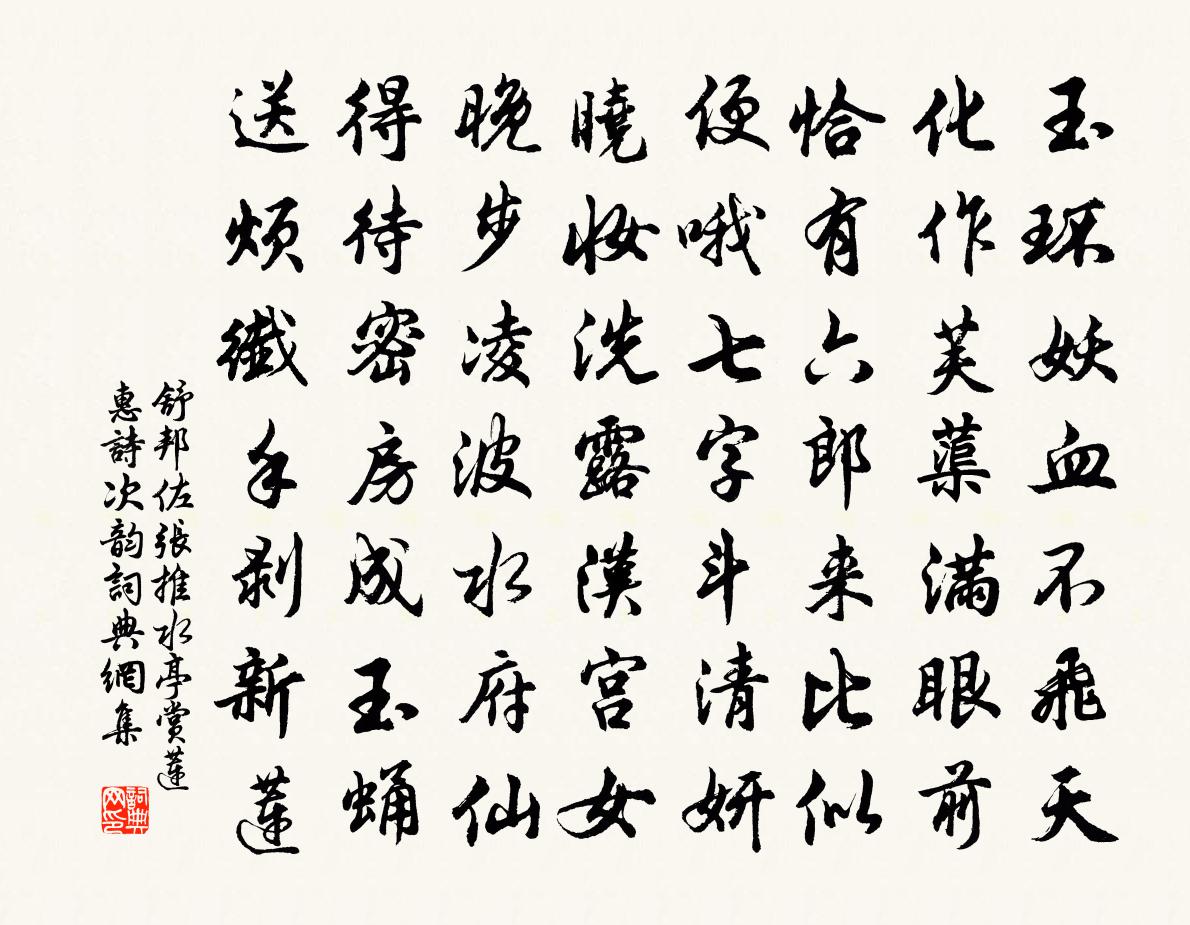 玉环妖血不飛天
化作芙蕖满眼前
恰有六郎来比似
便哦七字斗清妍
曉妝洗露漢宫女
晚步凌波水府仙
得待密房成玉蛹
送煩纖手剥新蓮
舒邦佐張推水亭赏蓮
惠詩次韵詞典網集
詞典网